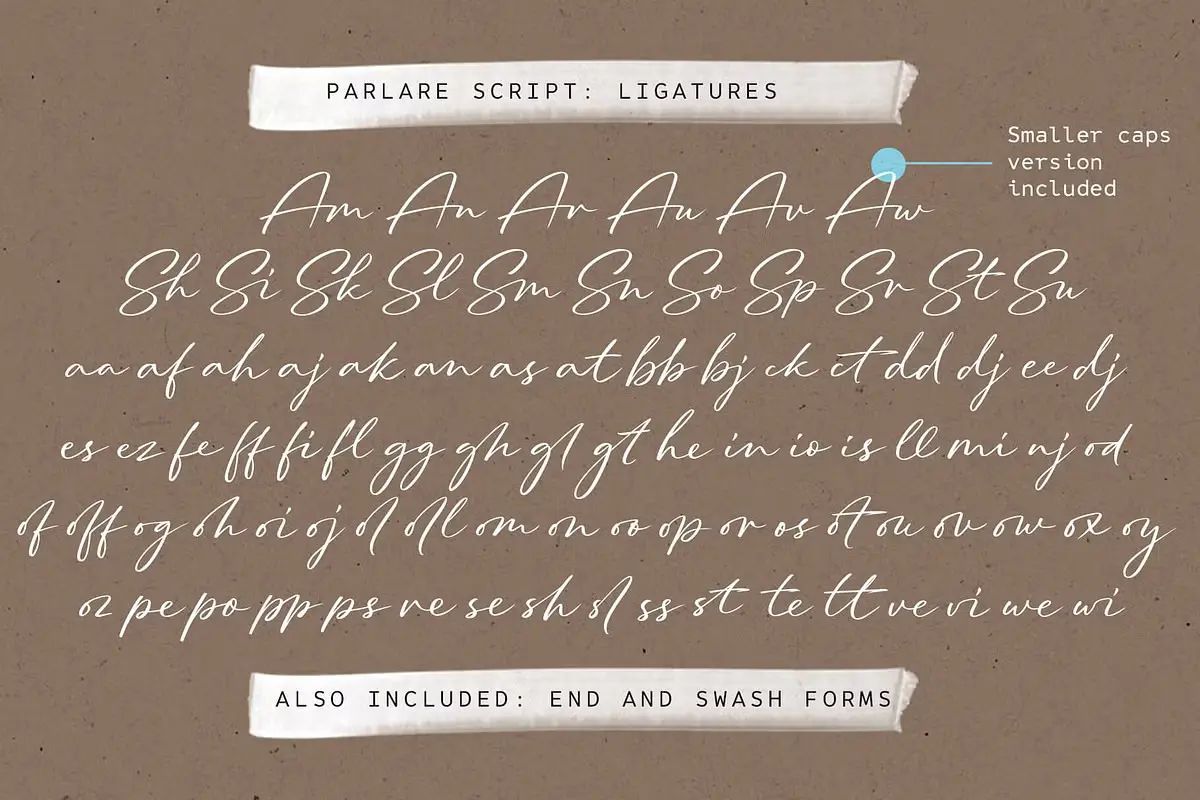 PARLARE SCRIPT: LIGATURES
Smaller caps
version
included
Am An Ar Au Av Aw
Sh Si Sk Sl Sm Sn So Sp Sr St Su
aa af ah aj ak an as at bb bj ck ct dd dj ee dj
es ez fe ff fi fl gg gh gl gt he in io is ll mi nj od
of off og oh oi oj ol oll om on oo op or os ot ou ov ow ox oy
oz pe po pp ps re se sh sl ss st te tt ve vi we wi
ALSO INCLUDED: END AND SWASH FORMS